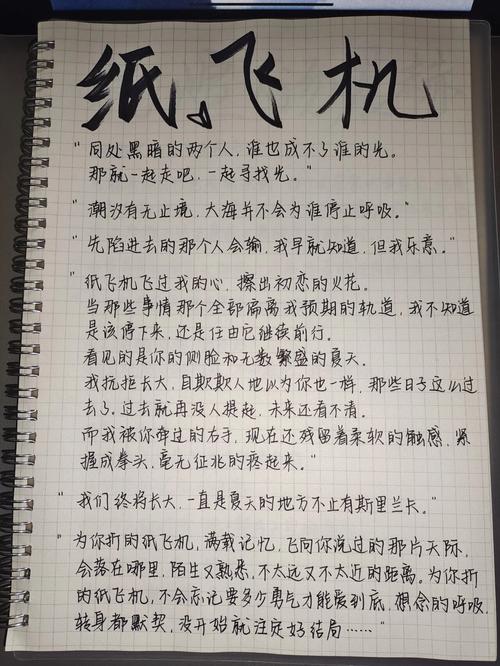 纸飞机
"同处黑暗的两个人，谁也成不了谁的光。
那就一起走吧，一起寻找光。"
"潮汐有无止境，大海并不会为谁停止呼吸。"
"先陷进去的那个人会输，我早就知道，但我乐意。"
"纸飞机飞过我的心，擦出初恋的火花。
当那些事情那个全部偏离我预期的轨道，我不知道
是该停下来，还是任由它继续前行。
看见的是你的侧脸和无数繁盛的夏天。
我抗拒长大，自欺欺人地以为你也一样，那些日子这么过
去了。过去就再没人提起，未来还看不清。
而我被你牵过的右手，现在还残留着柔软的触感，紧
握成拳头，毫无征兆的疼起来。"
"我们终将长大，一直是夏天的地方不止有斯里兰卡。"
"为你折的纸飞机，满载记忆，飞向你说过的那片天际，
会落在哪里，陌生又熟悉，不太远又不太近的距离。为你折
的纸飞机，不会忘记要多少勇气才能爱到底，想念的呼吸，
转身都默契，没开始就注定好结局……"